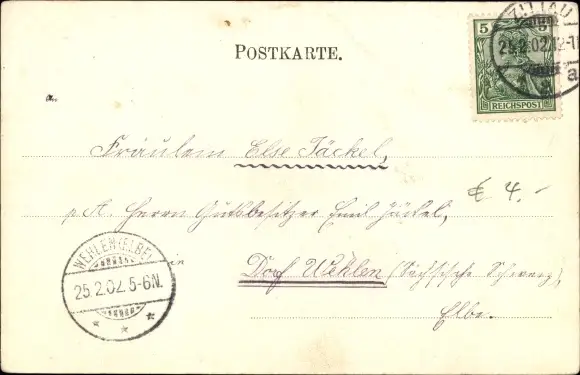 POSTKARTE.
5 5
REICHSPOST
ZITTAU
25.2.02.12-1
a
an
Fräulein Else Jäckel,
€ 4.-
p. A. Herrn Gutsbesitzer Emil Jäckel,
Dorf Wehlen (Sächsische Schweiz),
Elbe.
WEHLEN (ELBE)
25.2.02. 5-6N.